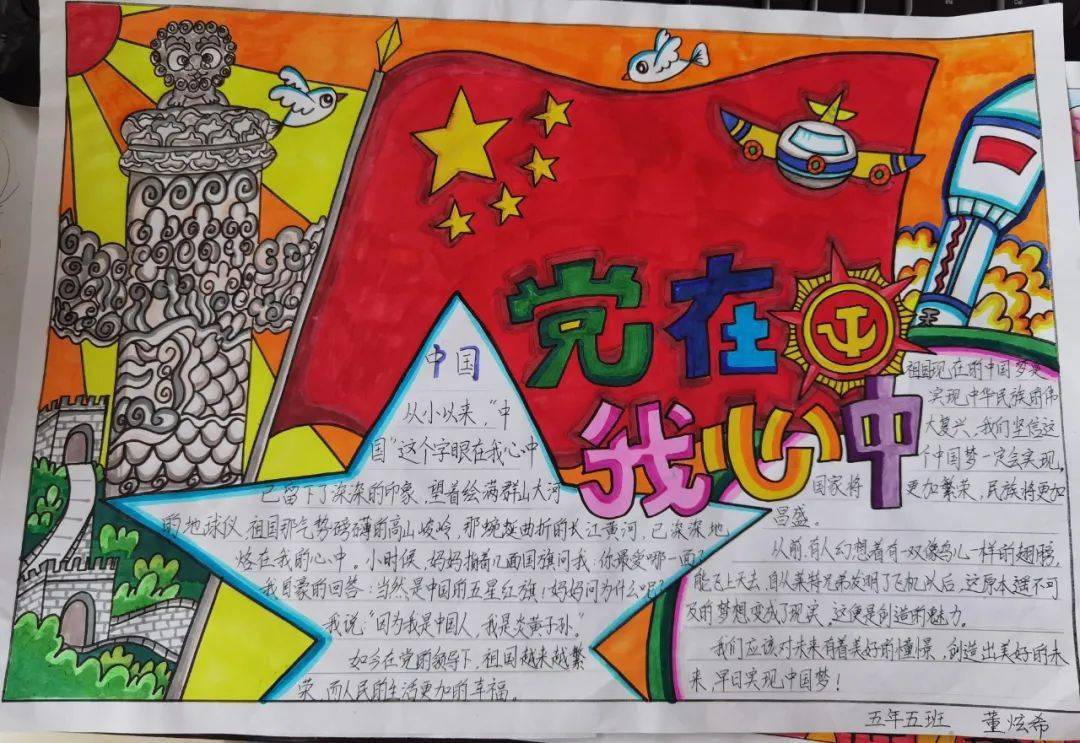 党在
我心中
中国
从小以来，"中
国"这个字眼在我心中
已留下了深深的印象，望着绘满群山大河
的地球仪，祖国那气势磅礴的高山峻岭，那蜿蜒曲折的长江黄河，已深深地
烙在我的心中。小时候，妈妈指着几面国旗问我：你最爱哪一面？
我自豪的回答：当然是中国的五星红旗！妈妈问为什么呢？
我说："因为我是中国人，我是炎黄子孙。"
如今在党的领导下，祖国越来越繁
荣，而人民的生活更加的幸福。
祖国现在的中国梦是
实现中华民族的伟
大复兴，我们坚信这
个中国梦一定会实现，
国家将更加繁荣，民族将更加
昌盛。
从前，有人幻想着有一双像鸟儿一样的翅膀，
能飞上天去，自从莱特兄弟发明了飞机以后，这原本遥不可
及的梦想变成了现实，这便是创造的魅力。
我们应该对未来有着美好的憧憬，创造出美好的未
来，早日实现中国梦！
五年五班 董炫希